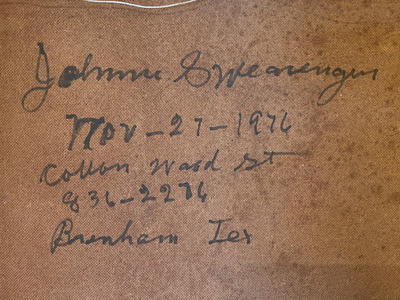 Johnnie Swearengin
Nov-27-1976
Cotton Ward St
836-2276
Brenham Tex